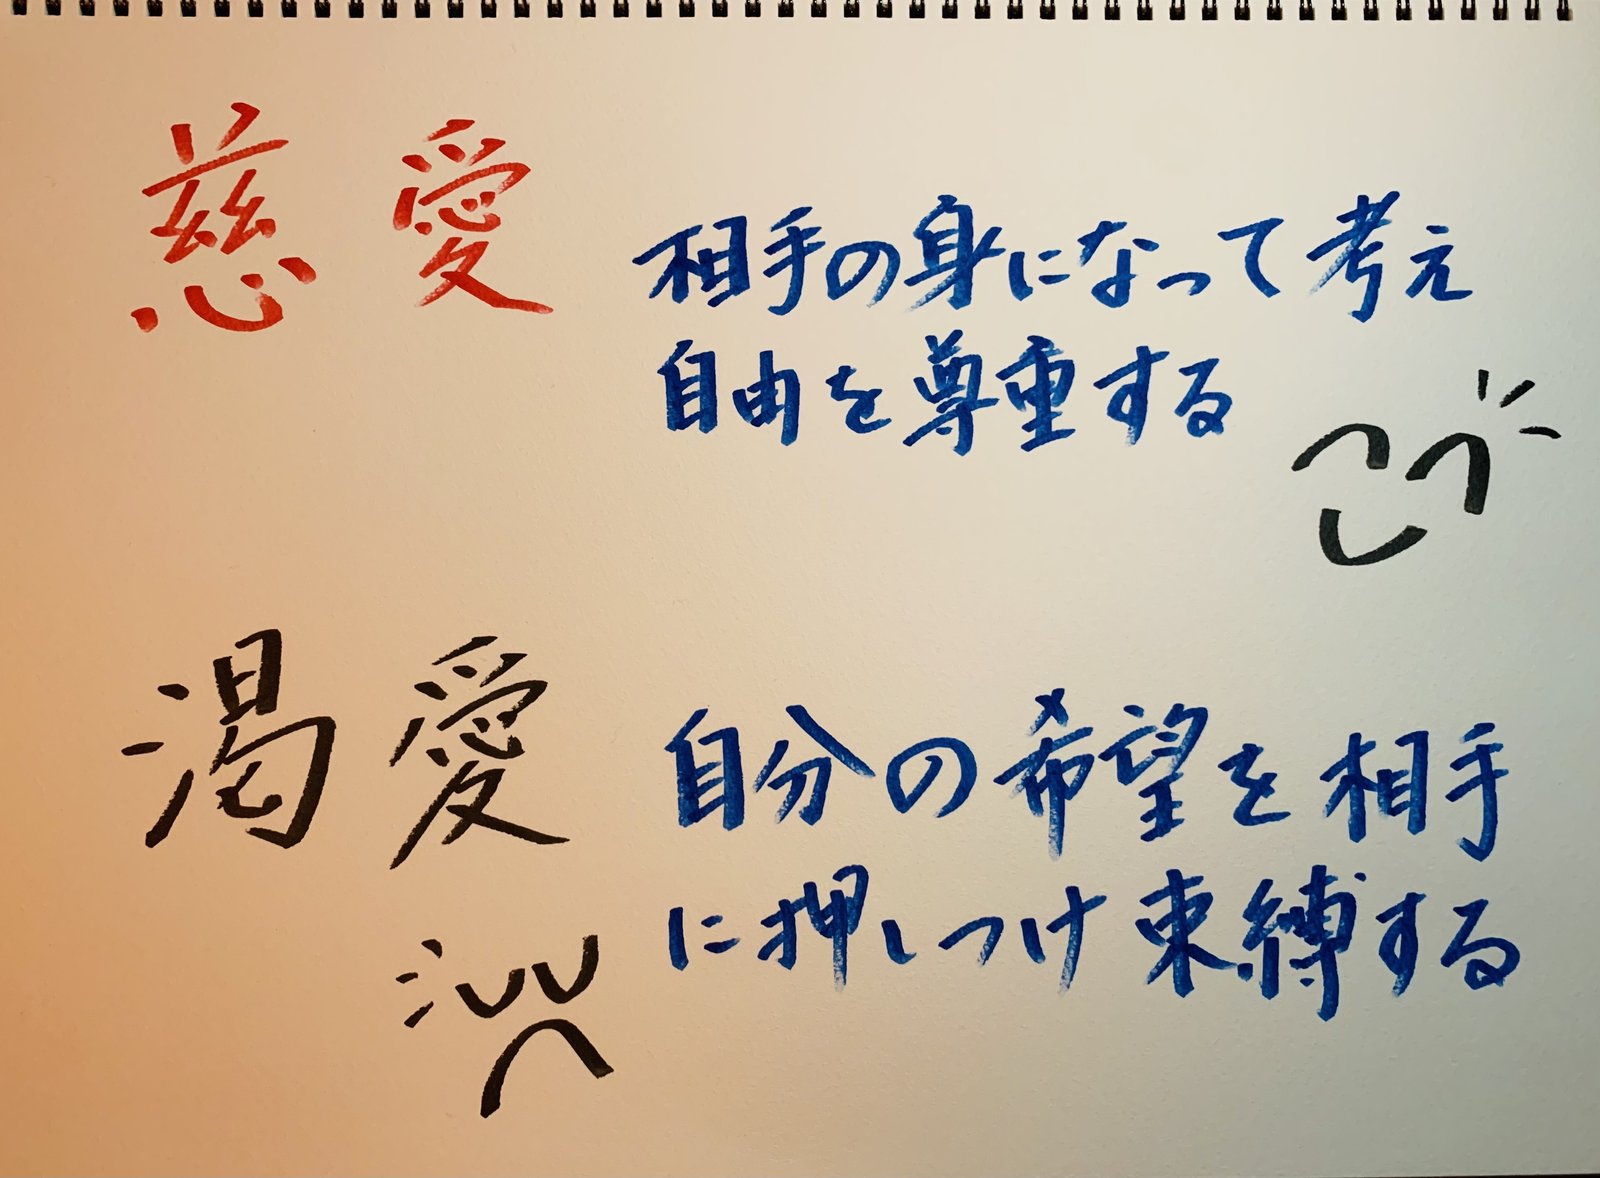 慈愛
相手の身になって考え
自由を尊重する
渇愛
自分の希望を相手
に押しつけ束縛する